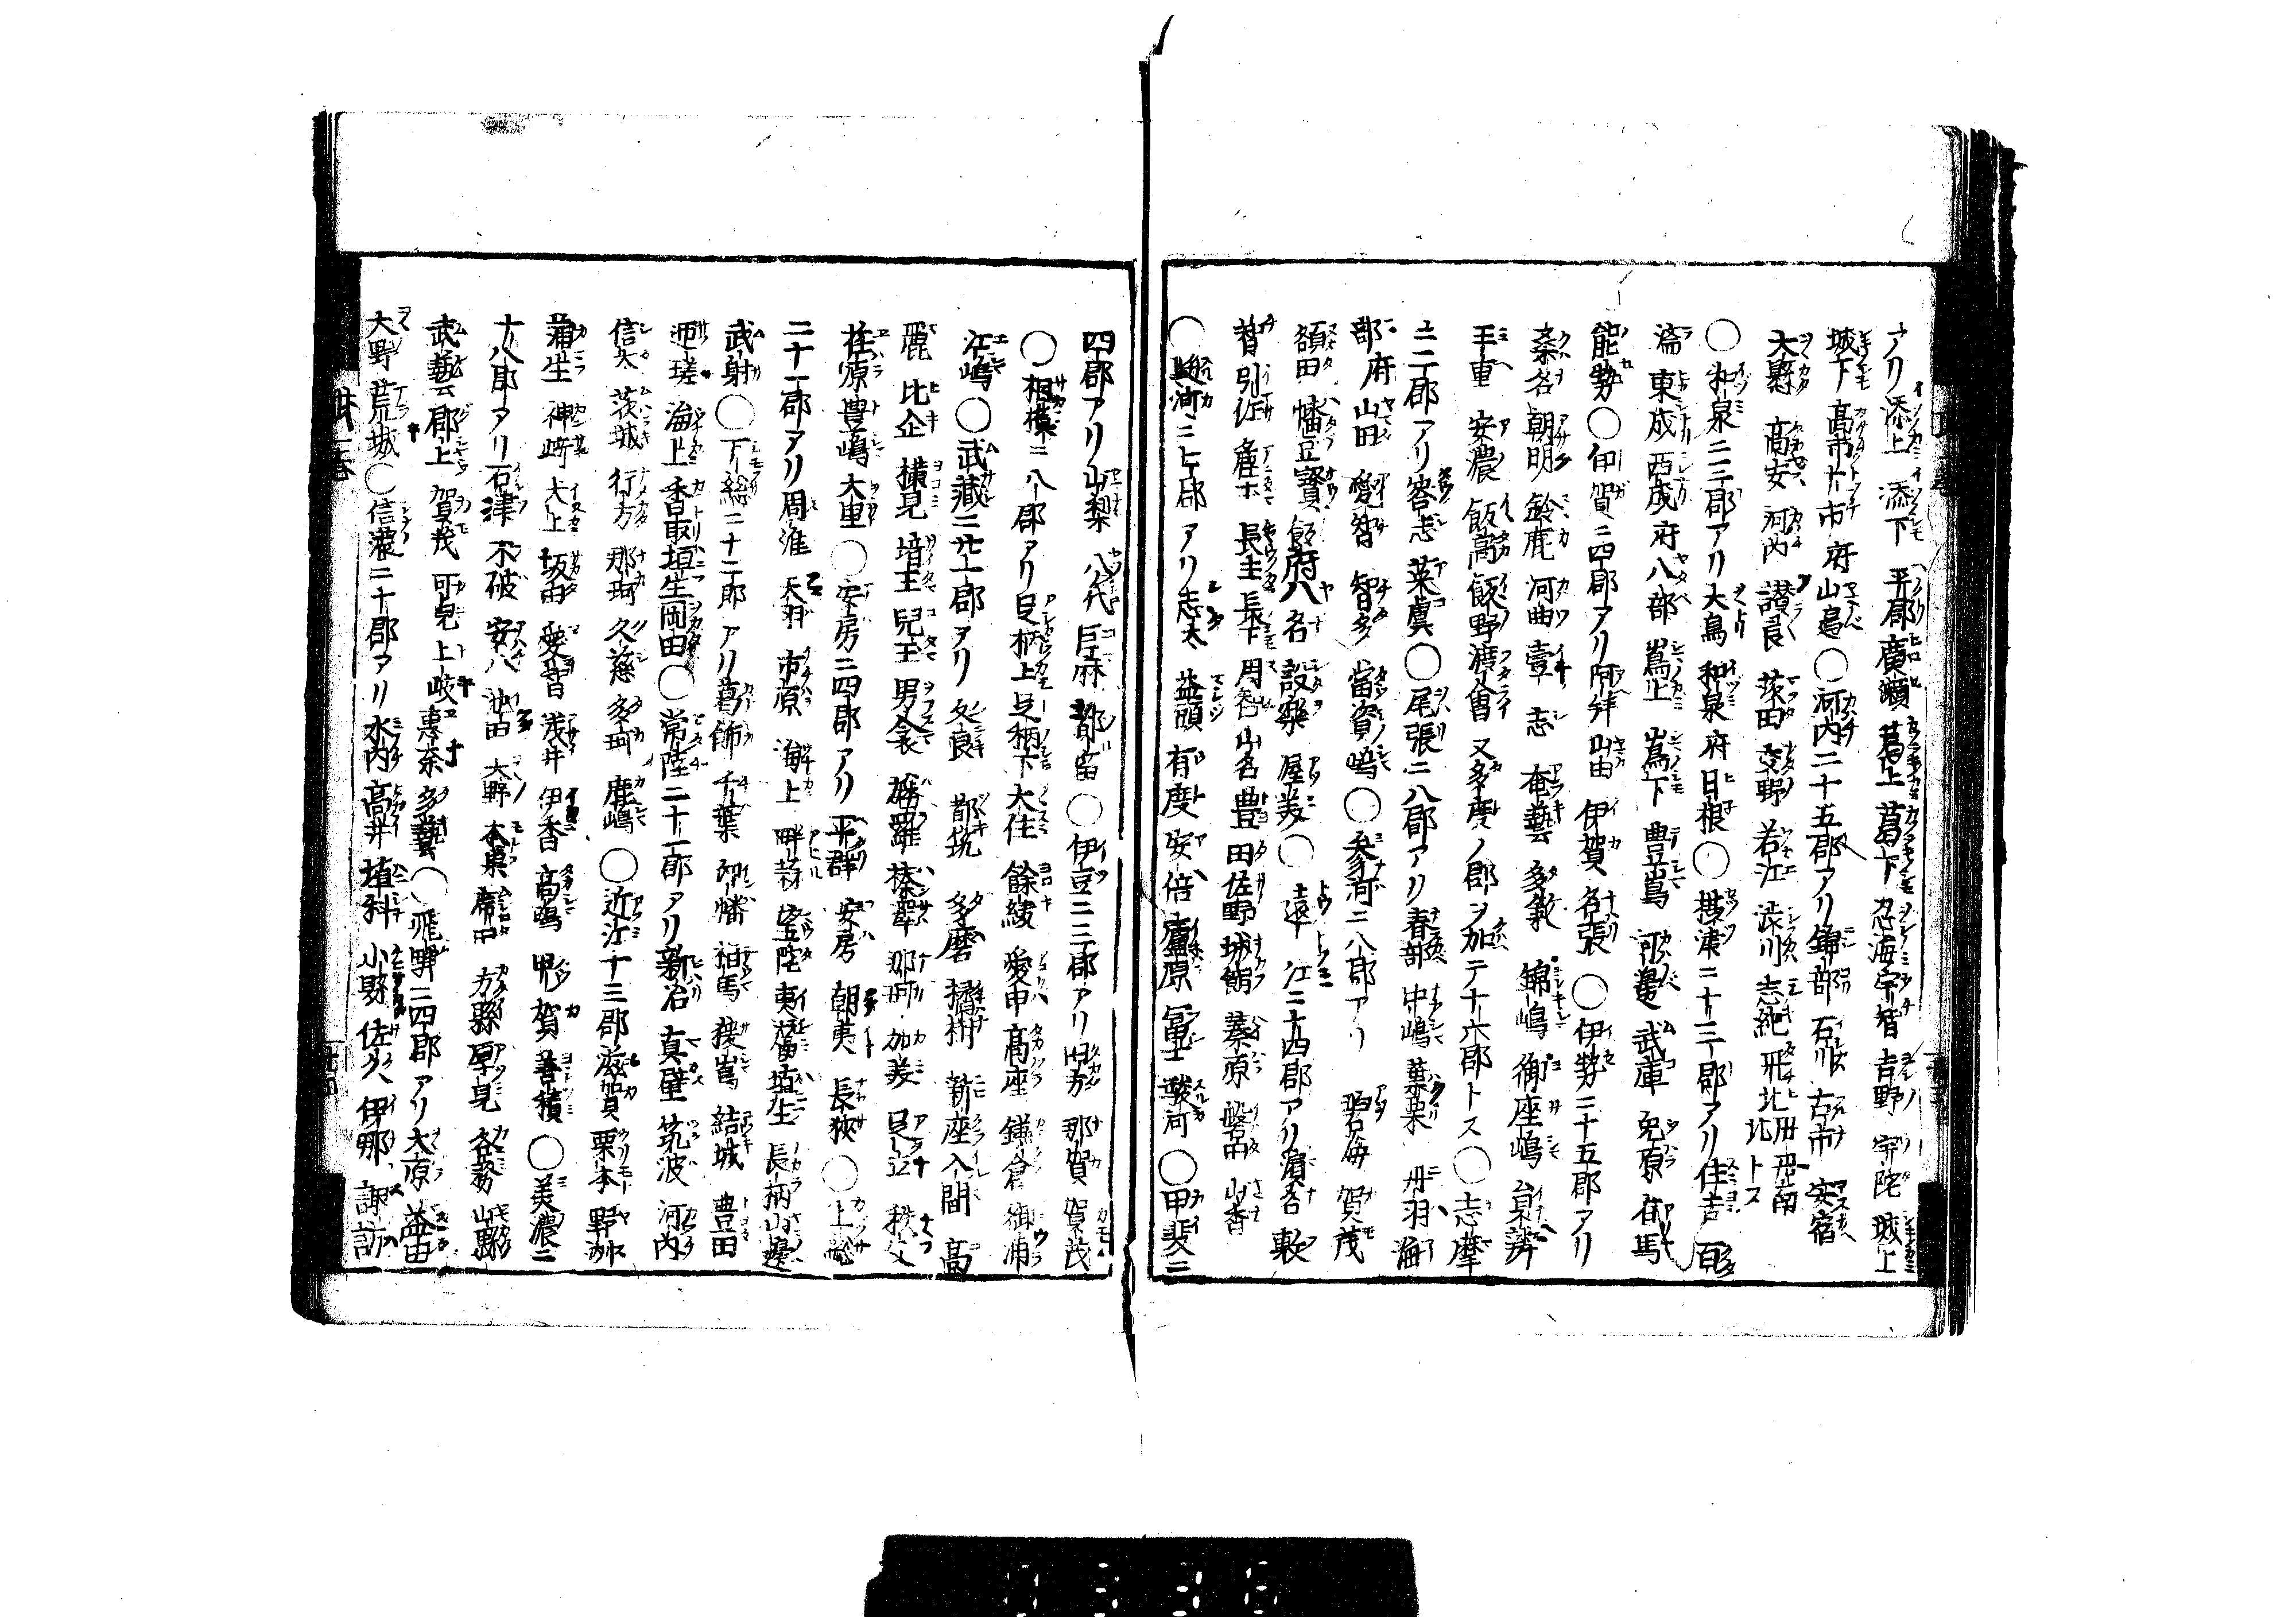 アリ添上添下平郡廣瀬葛上葛下忍海宇智吉野宇陀城上
城下高市十市府山邉〇河内ニ十五郡アリ錦部石川古市安宿
大縣高安河内讃良茨田交野若江渋川志紀丹北丹南
〇和泉ニ三郡アリ大鳥和泉府日根〇摂津ニ十三郡アリ住吉百
濟東成西成府八部嶌上嶌下豊嶌河邉武庫兎原有馬
能勢〇伊賀ニ四郡アリ阿拝山田伊賀名張〇伊勢ニ十五郡アリ
桒名朝明鈴鹿河曲壹志奄藝多氣錦嶋御座嶋
重安濃飯高飯野渡會又多度ノ郡ヲ加テ十六郡トス〇志摩
ニ二郡アリ答志英虞〇尾張ニ八郡アリ春部中嶋葉栗丹羽海
部府山田愛智智多當資嶋〇参河ニ八郡アリ碧海賀茂
額田幡豆寳飯府八名設楽屋美〇遠江ニ十四郡アリ濵名敷
智引佐麁玉長上長下周智山名豊田佐野城飼蓁原磐田山香
〇駿河ニ七郡アリ志太益頭有度安倍廬原冨士駿河〇甲斐ニ
四郡アリ山梨八代巨麻都留〇伊豆ニ三郡アリ田方那賀賀茂
〇相模ニ八郡アリ足柄上足柄下大住餘綾愛甲髙座鎌倉御浦
〇武藏ニ廿一郡アリ久良都筑多磨橘樹新座入間高
麗比企横見埼玉兒玉男衾榛澤那珂加美足立秩父
荏原豊嶋大里〇安房ニ四郡アリ平群安房朝夷長狭〇上総
二十一郡アリ周淮天羽市原海上畔蒜望陀夷灊埴生長柄山邉
武射〇下総ニ十二郡アリ葛飾千葉印幡相馬猨嶌結城豊田
迊瑳海上香取埴生岡田〇常陸ニ十一郡アリ新治真壁筑波河内
信太茨城行方那珂久慈多珂鹿嶋〇近江十三郡滋賀栗本野洲
蒲生神﨑犬上坂田愛智浅井伊香髙嶋甲賀善積〇美濃ニ
十八郡アリ石津不破安八池田大野本巣席田方縣厚見各務山縣
武藝郡上賀茂可兒土岐惠奈多藝〇飛騨ニ四郡アリ大原益田
大野荒城〇信濃ニ十郡アリ水内高井埴科小縣佐久伊那諏訪